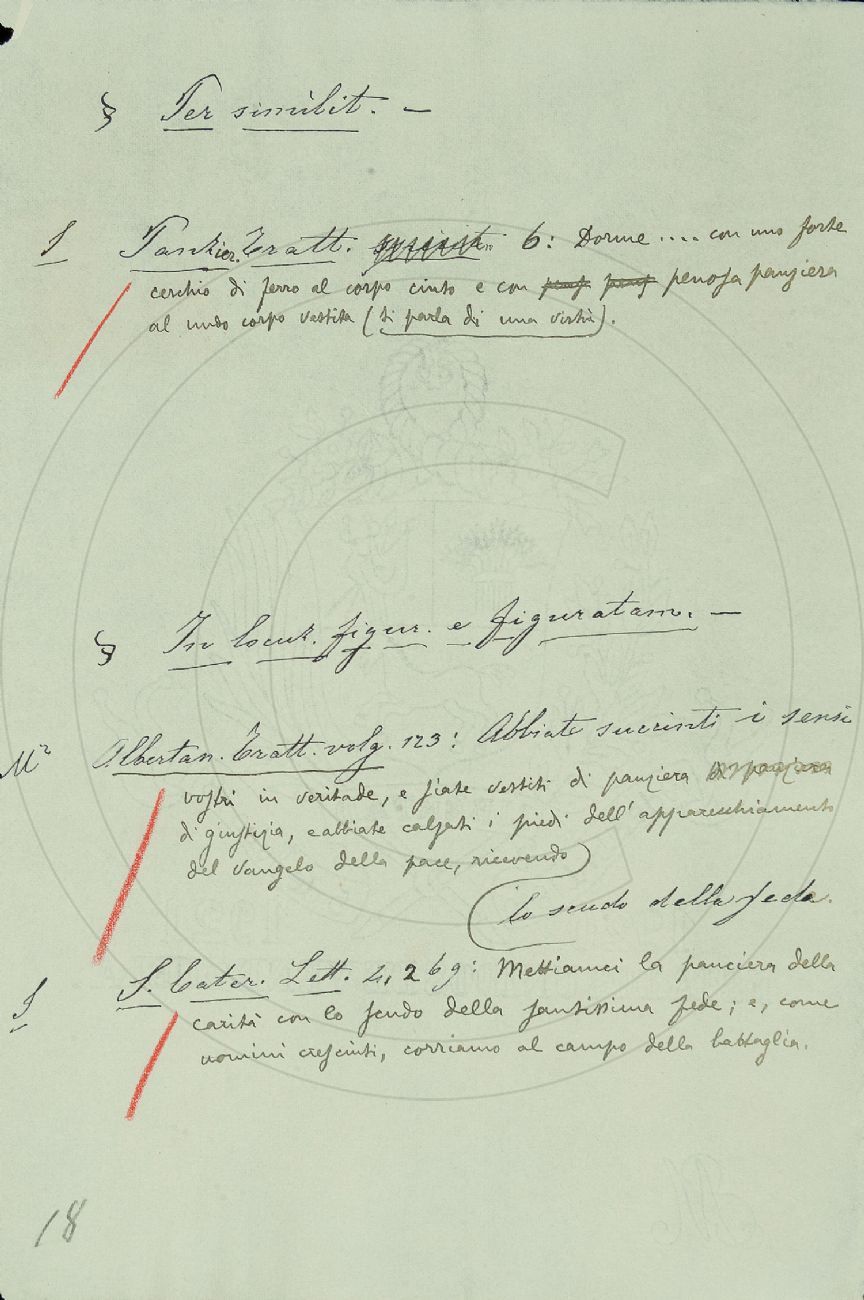 § Per similit. —
S Panzier. Tratt. 6: Dorme .... con uno forte
cerchio di ferro al corpo cinto e con penosa panziera
al nudo corpo vestita (si parla di una virtù).
§ In locuz. figur. e figuratam. —
Mª Albertan. Tratt. volg. 123: Abbiate succinti i sensi
vostri in veritade, e siate vestiti di panziera
di giustizia, e abbiate calzati i piedi dell'apparecchiamento
del vangelo della pace, ricevendo
lo scudo della fede.
S S. Cater. Lett. 4, 269: Mettianci la panciera della
carità con lo scudo della santissima fede; e, come
uomini cresciuti, corriamo al campo della battaglia.
18